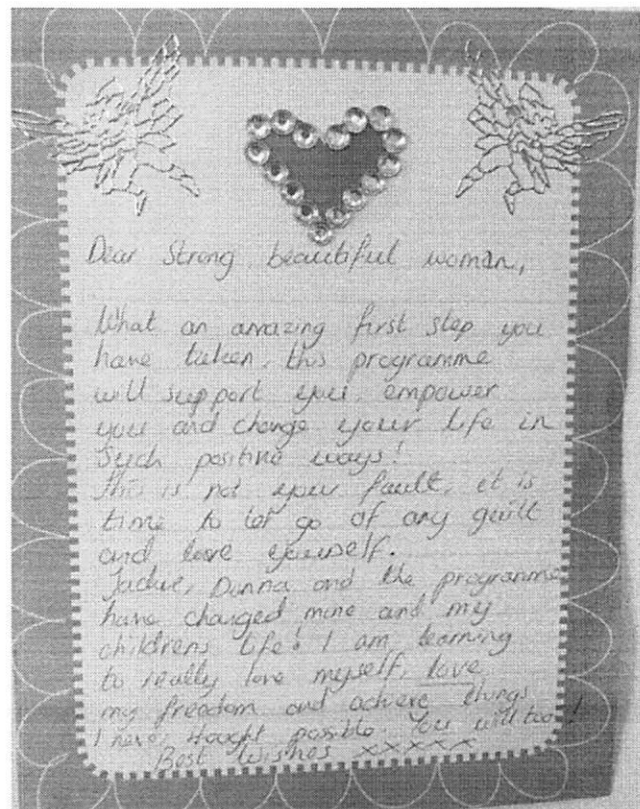 Dear Strong, beautiful woman,
What an amazing first step you
have taken, this programme
will support you, empower
you and change your life in
such positive ways!
This is not your fault, it is
time to let go of any guilt
and love yourself.
Jackie, Donna and the programme
have changed mine and my
childrens life! I am learning
to really love myself, love
my freedom and achieve things
I have thought possible. You will too!
Best Wishes xxxxx